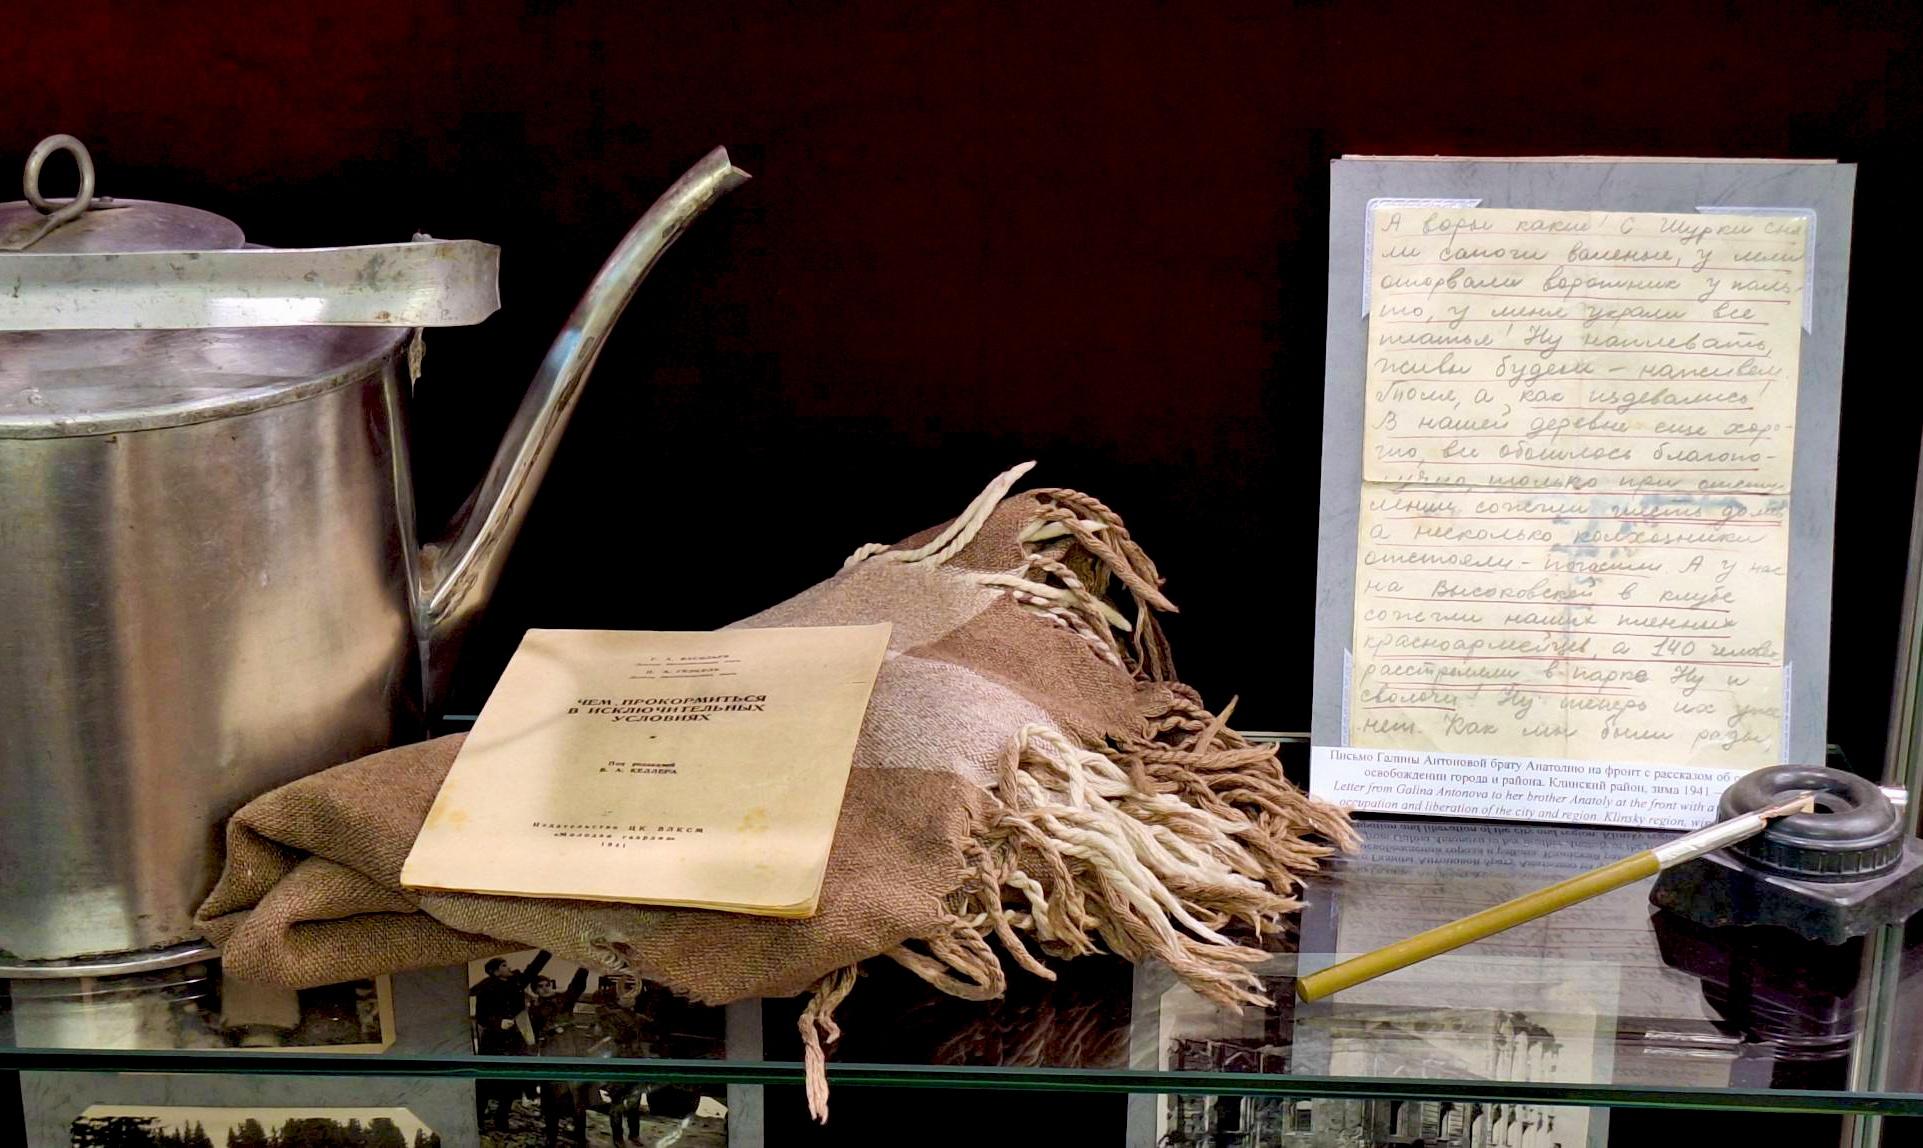 Г. А. ВАСИЛЬЕВ
ЧЕМ ПРОКОРМИТЬСЯ
В ИСКЛЮЧИТЕЛЬНЫХ
УСЛОВИЯХ
Под редакцией
Б. А. КЕЛЛЕРА
Издательство ЦК ВЛКСМ
«Молодая гвардия»
1941
А воры какие! С Шурки сня
ли сапоги валеные, у мамы
оторвали воротник у паль-
то, у меня украли все
платья! Ну наплевать,
живы будем – наживем!
а как издевались!
В нашей деревне еще хоро-
шо, все обошлось благопо-
лучно, только при отступ
лении сожгли шесть домов
а несколько колхозники
отстояли – погасили. А у нас
на Высоковской в клубе
сожгли наших пленных
красноармейцев, а 140 челове
расстреляли в парке Ну и
сволочи! Ну теперь их уже
нет. Как мы были рады,
Письмо Галины Антоновой брату Анатолию на фронт с рассказом об
освобождении города и района. Клинский район, зима 1941 –
Letter from Galina Antonova to her brother Anatoly at the front with a
occupation and liberation of the city and region. Klinsky region,